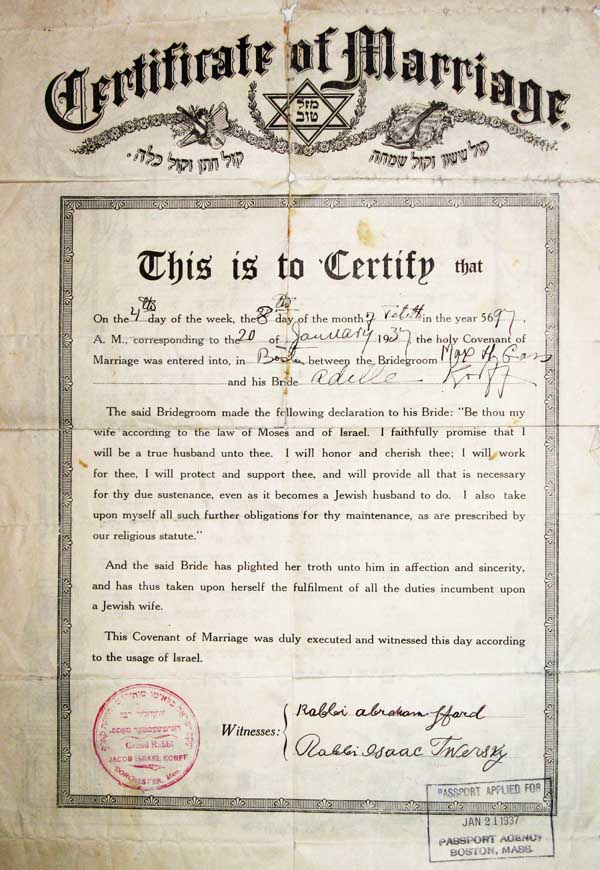 Certificate of Marriage.
מזל
טוב
קול ששון וקול שמחה
קול חתן וקול כלה.
This is to Certify that
On the 4th day of the week, the 8th day of the month of Tebeth in the year 5697,
A. M., corresponding to the 20 of January 1937 the holy Covenant of
Marriage was entered into, in Boston between the Bridegroom Max H
and his Bride Adelle Korff
The said Bridegroom made the following declaration to his Bride: "Be thou my
wife according to the law of Moses and of Israel. I faithfully promise that I
will be a true husband unto thee. I will honor and cherish thee; I will work
for thee, I will protect and support thee, and will provide all that is necessary
for thy due sustenance, even as it becomes a Jewish husband to do. I also take
upon myself all such further obligations for thy maintenance, as are prescribed by
our religious statute."
And the said Bride has plighted her troth unto him in affection and sincerity,
and has thus taken upon herself the fulfilment of all the duties incumbent upon
a Jewish wife.
This Covenant of Marriage was duly executed and witnessed this day according
to the usage of Israel.
Grand Rabbi
JACOB ISRAEL KORFF
DORCHESTER, Mass.
Witnesses:
Rabbi Abraham
Rabbi Isaac Twersky
PASSPORT APPLIED FOR
JAN 21 1937
PASSPORT AGENCY
BOSTON, MASS.